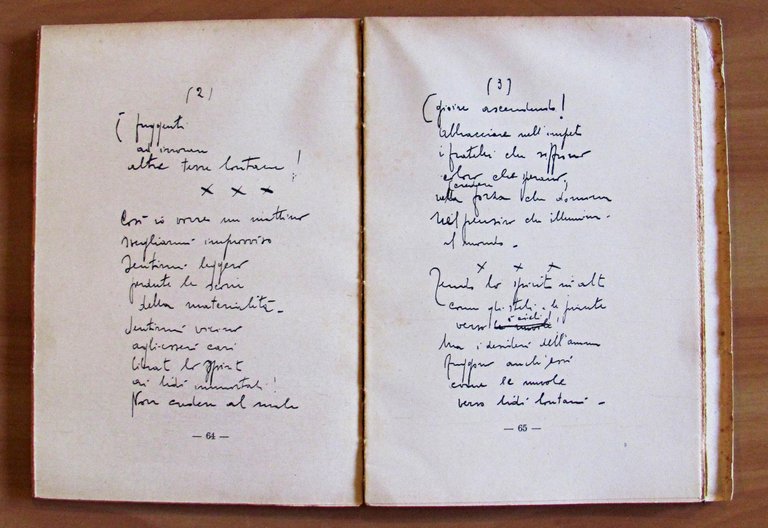 (2)
( fuggenti
ad irrorare
altre terre lontane!
x x x
Così io vorrei un mattino
svegliarmi improvviso
Sentirmi leggero
perdute le scorie
della materialità.
Sentirmi vicino
agli esseri cari
librar lo spirit
ai lidi immortali!
Non credere al male
— 64 —
(3)
(gioire ascendendo!
abbracciare nell'impeto
i fratelli che soffrono
coloro che sperano,
credere
nella forza che domina
nel pensiero che illumina
il mondo.
x x x
Tendo lo spirito in alt
come gli steli le piante
verso i cieli!
ma i desideri dell'anima
fuggono anch'essi
come le nuvole
verso lidi lontani.
— 65 —